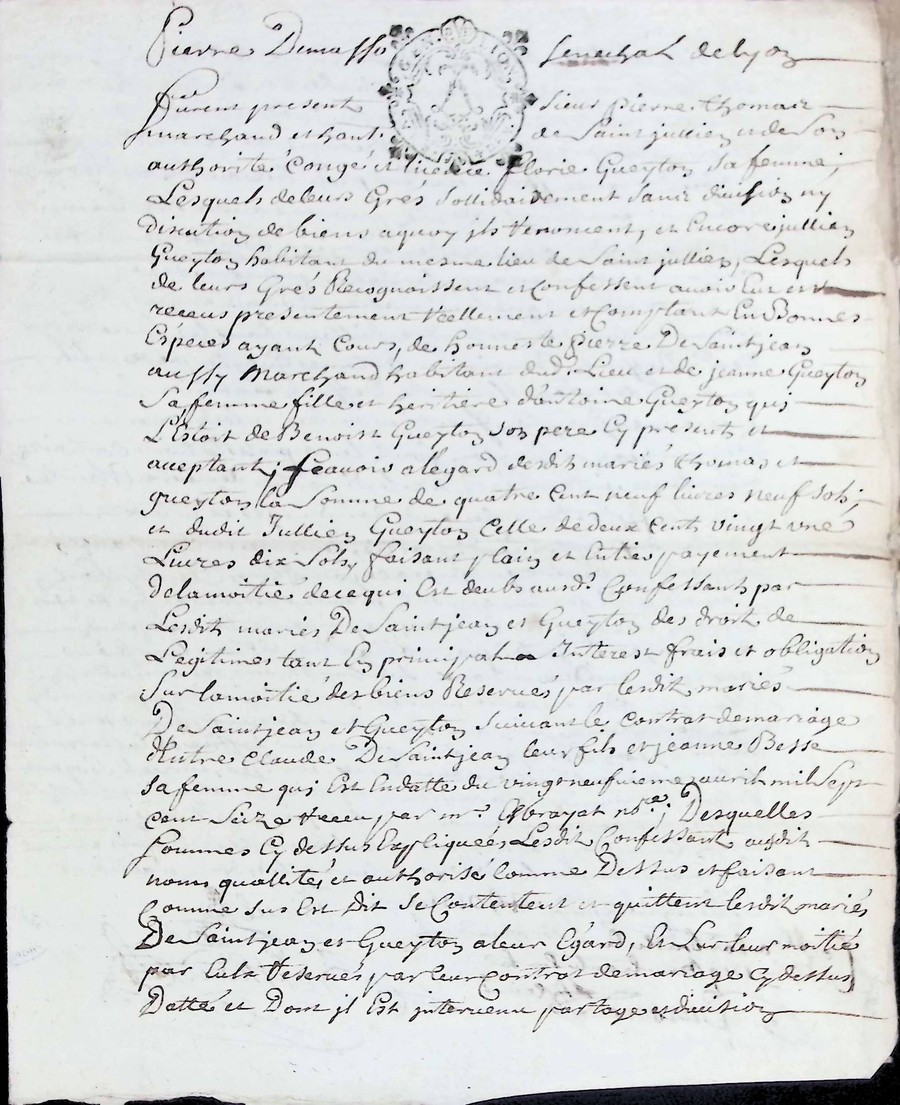 Pierre Demasso senechal de lyon
Furent present sieur pierre thomas
marchand et hant. de Saint jullien et de Son
authorité Congé et licence florie Gueyton sa femme,
Lesquels de leurs Grés sollidairement sans division ny
discution de biens a quoy jls renoncent, et Encore jullien
Gueyton habitant du mesme lieu de Saint jullien, Lesquels
de leurs Grés Recognoissent et Confessent avoir Eut et
receus presentement réellement et Comptant En Bonnes
Espéces ayant Cours, de honneste pierre De Saintjean
aussy Marchand habitant dud. Lieu et de jeanne Gueyton
Sa femme fille et heritiére d'antoine Gueyton qui
L'Estoit de Benoist Gueyton son pere Cy present et
aceptant, scavoir a légard desdit mariés thomas et
gueyton la Somme de quatre cent neuf livres neuf sols,
et dudit Jullien Gueyton Celle de deux Cents vingt une
Livres dix Sols, faisant plain et Entier payement
de la moitié de ce qui Est deub ausd. Confessants par
Lesdit mariés De Saintjean et Gueyton des droit de
Légitimes tant En principal Interest frais et obligation
Sur la moitié des biens Reservés par lesdit mariés
De Saintjean et Gueyton suivant le contrat de mariage
d'Entre Claude De Saintjean leur fils et jeanne Besse
sa femme qui Est En datte du vingt neufuieme avril mil Sept
cent Seize receu par mr. Chbrayat nore.; Desquelles
sommes Cy dessus Expliquées Lesdit Confessant audit
noms quallités et authorisé Comme Dessus et faisant
Comme sus Est Dit se Contentent et quittent lesdit mariés
De Saintjean et Gueyton a leur Egard, Et Sur leur moitié
par Eulx reservés par leur contrat de mariage Cy dessus
Datté et Dont jl Est jntervenu partage et division